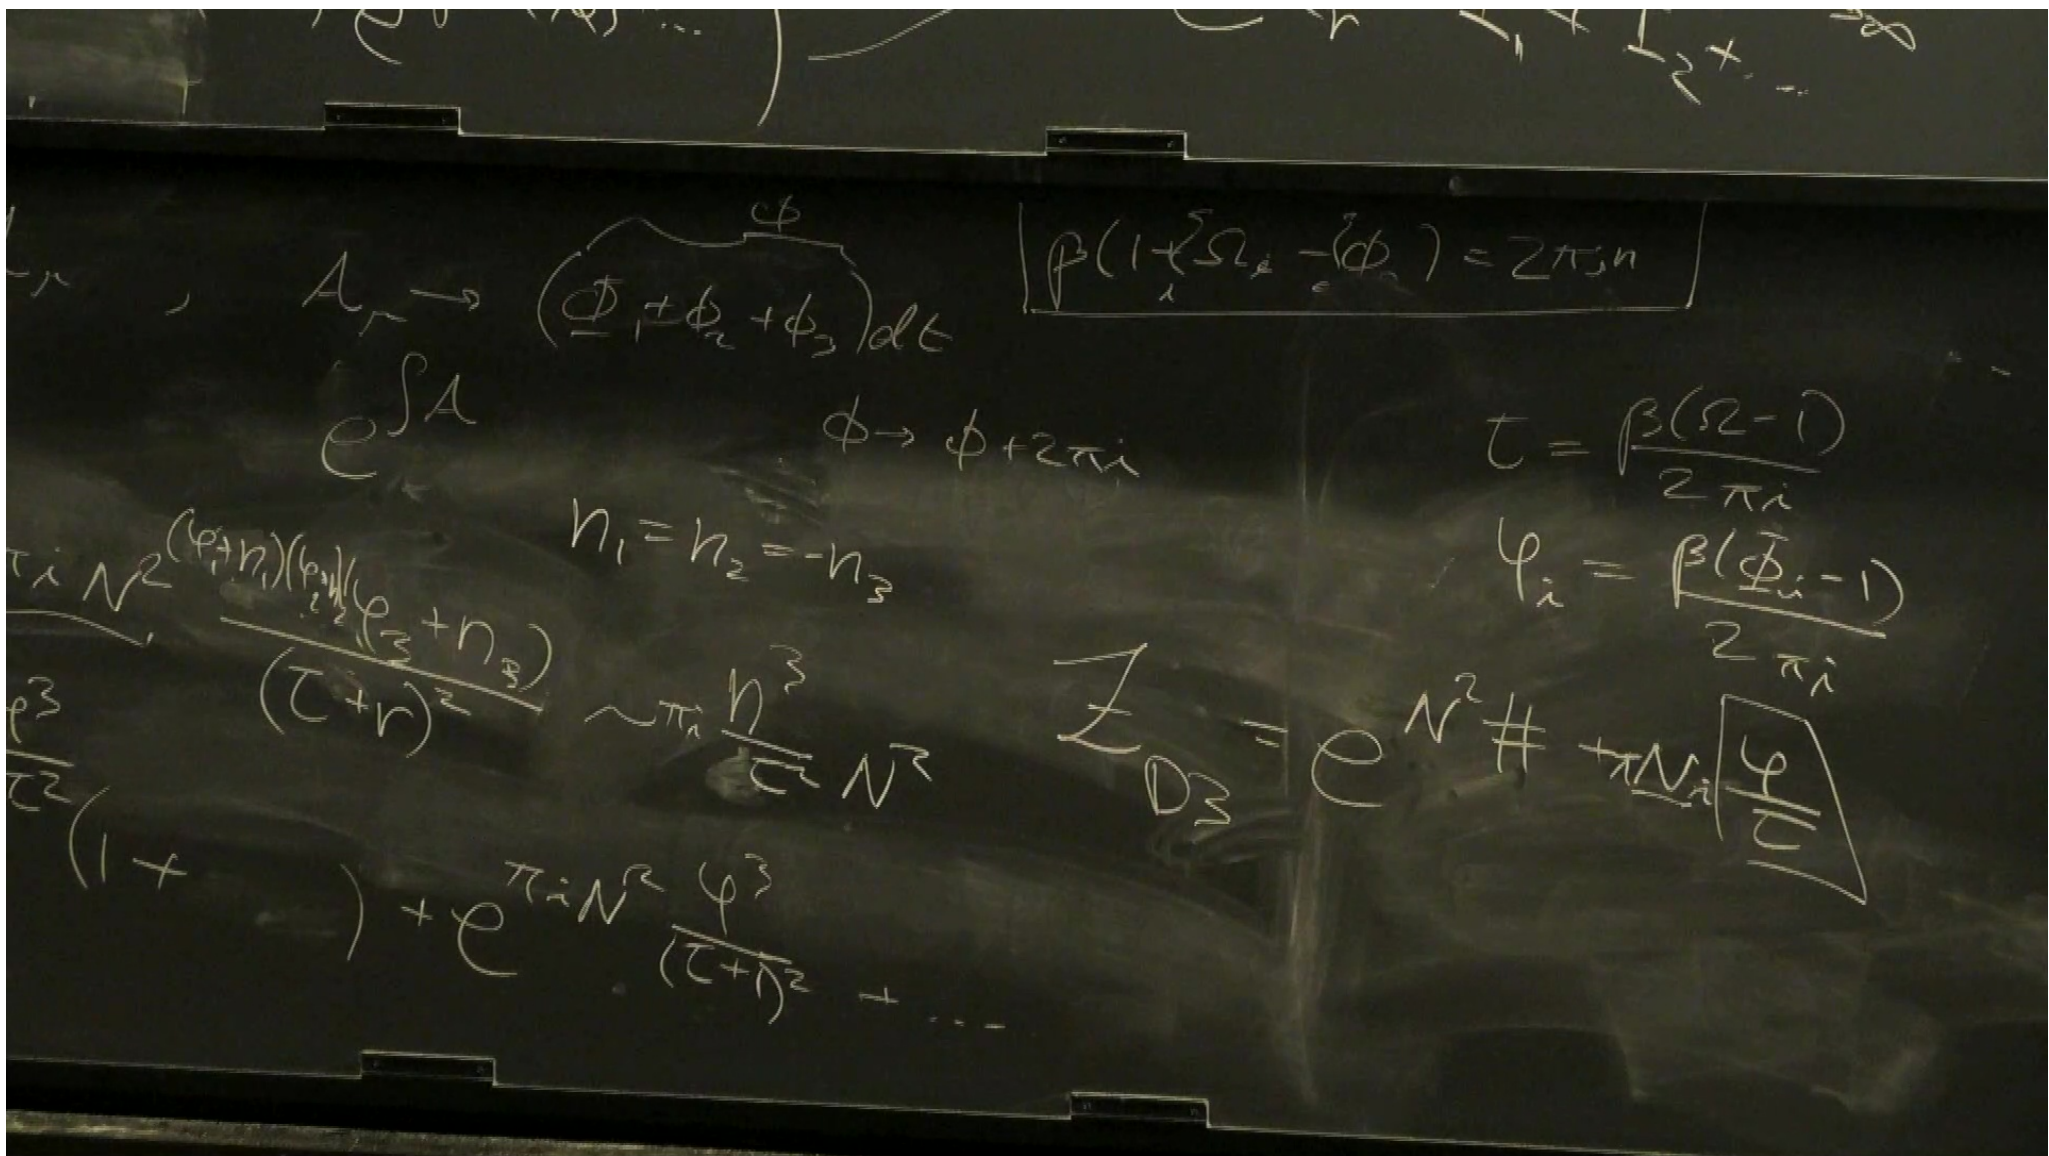 I_1 + I_2 + ...
, A_μ → (Φ_1 + Φ_2 + Φ_3) dt
Φ
β(1 + Σ_i Ω_i - Σ Φ_i) = 2πi n
e^{∫A}
Φ → Φ + 2πi
τ = β(Ω-1) / 2πi
n_1 = n_2 = -n_3
φ_i = β(Φ_i - 1) / 2πi
πi N^2 (φ_1+n_1)(φ_2+n_2)(φ_3+n_3) / (τ+r)^2 ~ πi n^3 / τ^2 N^2
Z_{D3} = e^{N^2 # + πNi φ/τ}
φ^3 / τ^2 (1 + ) + e^{πi N^2 φ^3 / (τ+1)^2} + ...